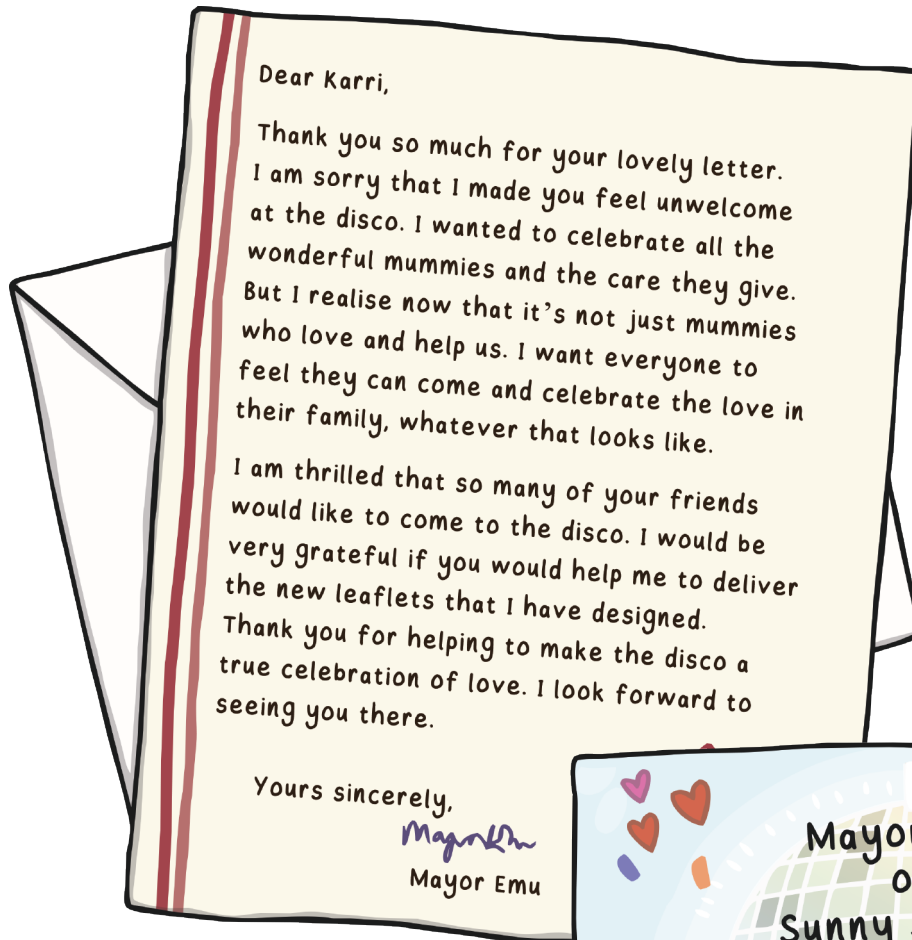 Dear Karri,
Thank you so much for your lovely letter.
I am sorry that I made you feel unwelcome
at the disco. I wanted to celebrate all the
wonderful mummies and the care they give.
But I realise now that it's not just mummies
who love and help us. I want everyone to
feel they can come and celebrate the love in
their family, whatever that looks like.
I am thrilled that so many of your friends
would like to come to the disco. I would be
very grateful if you would help me to deliver
the new leaflets that I have designed.
Thank you for helping to make the disco a
true celebration of love. I look forward to
seeing you there.
Yours sincerely,
Mayor Emu
Mayor
Sunny